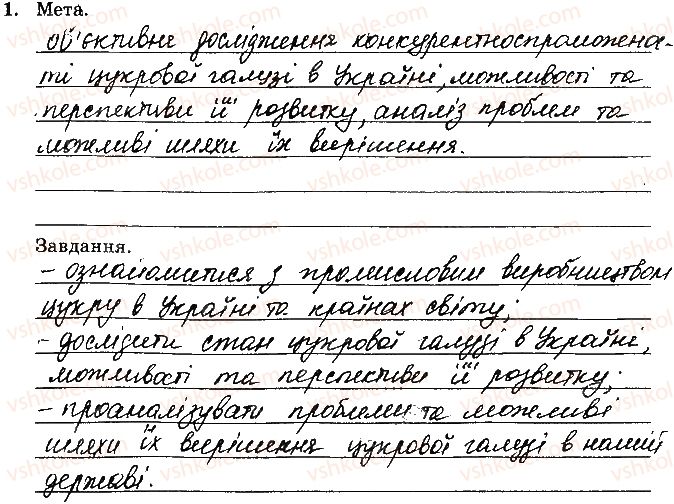 1. Мета.
об'єктивне дослідження конкурентноспроможена-
ті цукрової галузі в Україні, можливості та
перспективи її розвитку, аналіз проблем та
можливі шляхи їх вирішення.
Завдання.
- ознайомитися з промисловим виробництвом
цукру в Україні та країнах світу;
- дослідити стан цукрової галузі в Україні,
можливості та перспективи її розвитку;
- проаналізувати проблеми та можливі
шляхи їх вирішення цукрової галузі в нашій
державі.